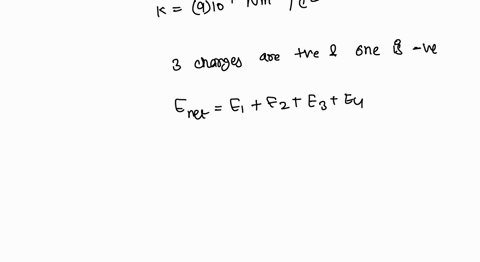 K = (9)10 Nm /C
3 charges are +ve & one is -ve
E net = E1 + E2 + E3 + E4